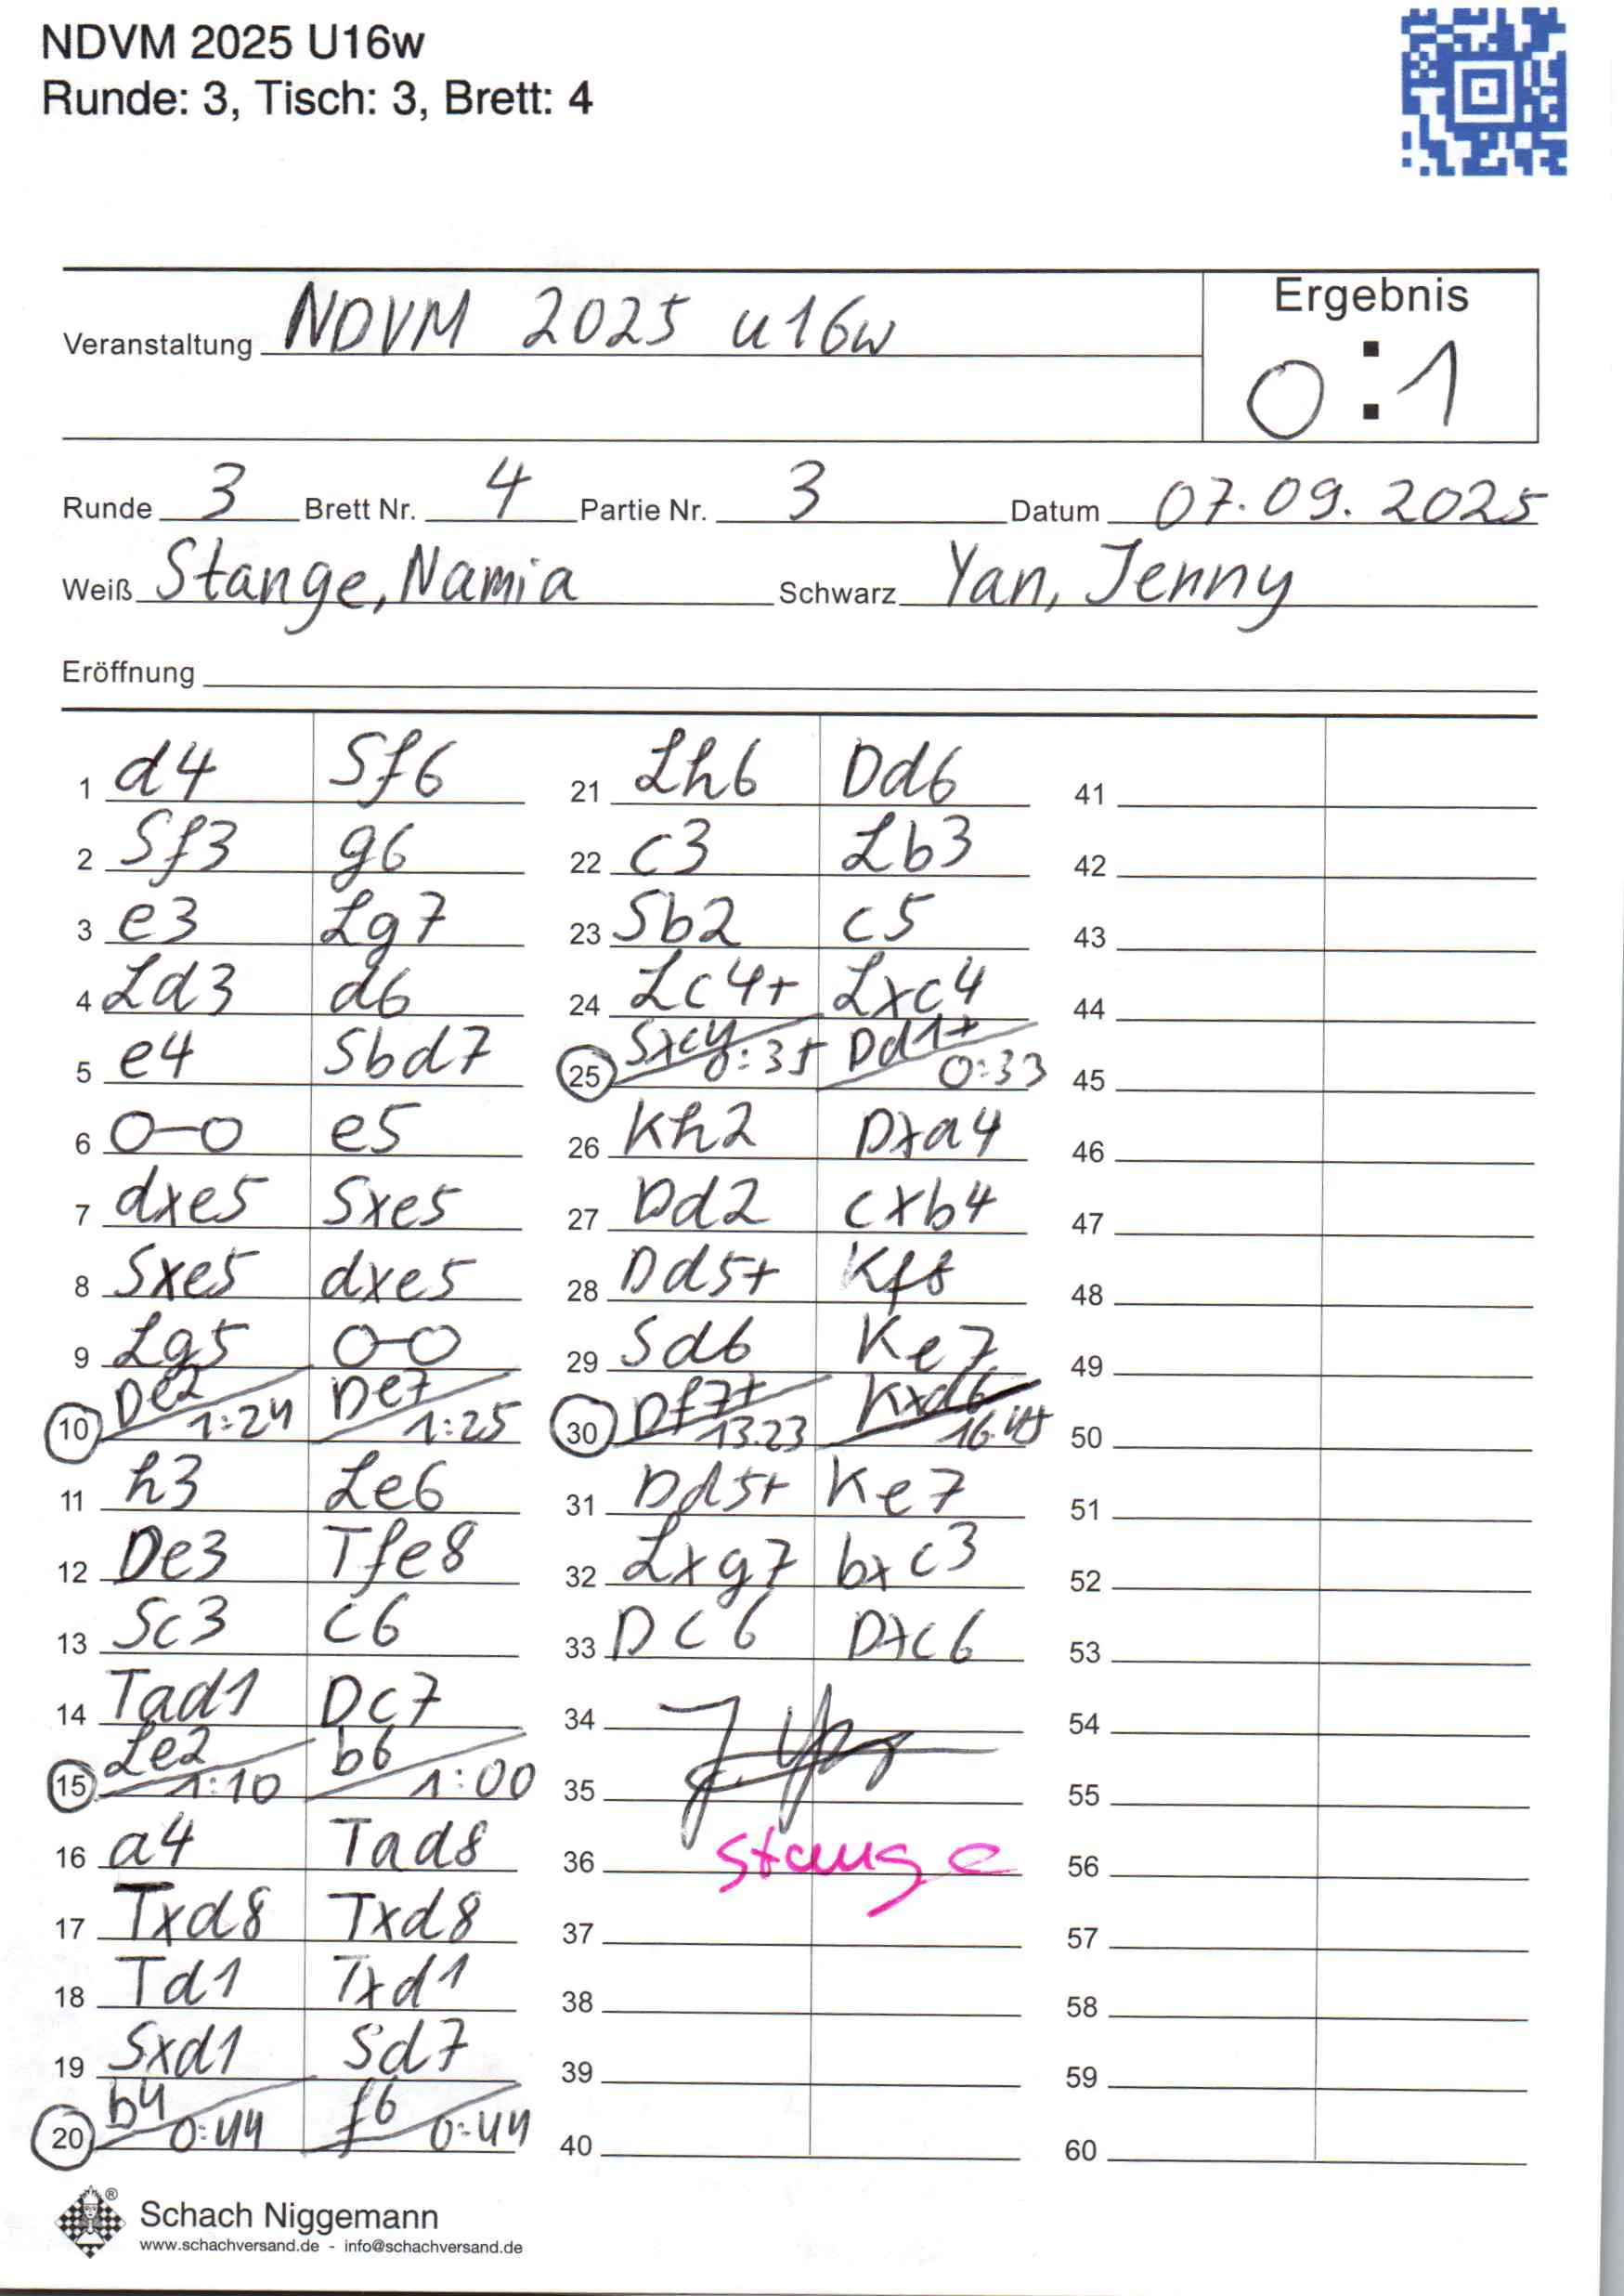 NDVM 2025 U16w
Runde: 3, Tisch: 3, Brett: 4
Ergebnis
Veranstaltung NDVM 2025 u16w
0:1
Runde 3 Brett Nr. 4 Partie Nr. 3 Datum 07.09.2025
Weiß Stange, Namia Schwarz Yan, Jenny
Eröffnung
1 d4 Sf6
2 Sf3 g6
3 e3 Lg7
4 Ld3 d6
5 e4 Sbd7
6 0-0 e5
7 dxe5 Sxe5
8 Sxe5 dxe5
9 Lg5 0-0
10 De2 1:24 De7 1:25
11 h3 Le6
12 De3 Tfe8
13 Sc3 c6
14 Tad1 Dc7
15 Le2 1:10 b6 1:00
16 a4 Tad8
17 Txd8 Txd8
18 Td1 Txd1
19 Sxd1 Sd7
20 b4 0:44 f6 0:44
21 Lh6 Dd6
22 c3 Lb3
23 Sb2 c5
24 Lc4+ Lxc4
25 Sxc4 0:35 Dd1+ 0:33
26 Kh2 Dxa4
27 Dd2 cxb4
28 Dd5+ Kf8
29 Sd6 Ke7
30 Df7+ 13.23 Kxd6
31 Dd5+ Ke7
32 Lxg7 bxc3
33 Dc6 Dxc6
34
35
36 Stange
37
38
39
40
41
42
43
44
45
46
47
48
49
50
51
52
53
54
55
56
57
58
59
60
®
Schach Niggemann
www.schachversand.de - info@schachversand.de